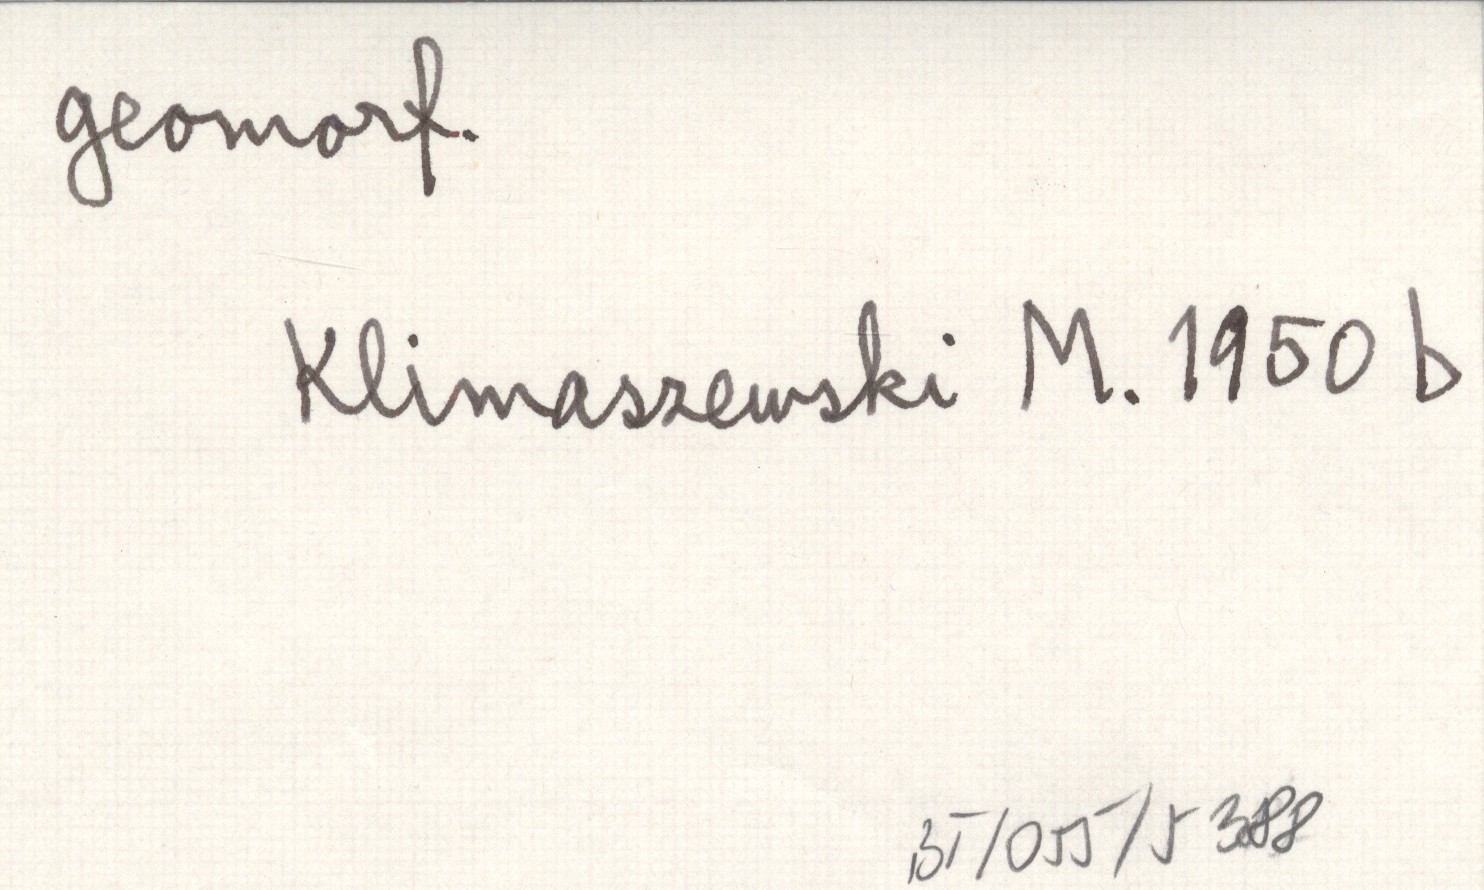 geomorf.
Klimaszewski M. 1950 b
BT/055/5388